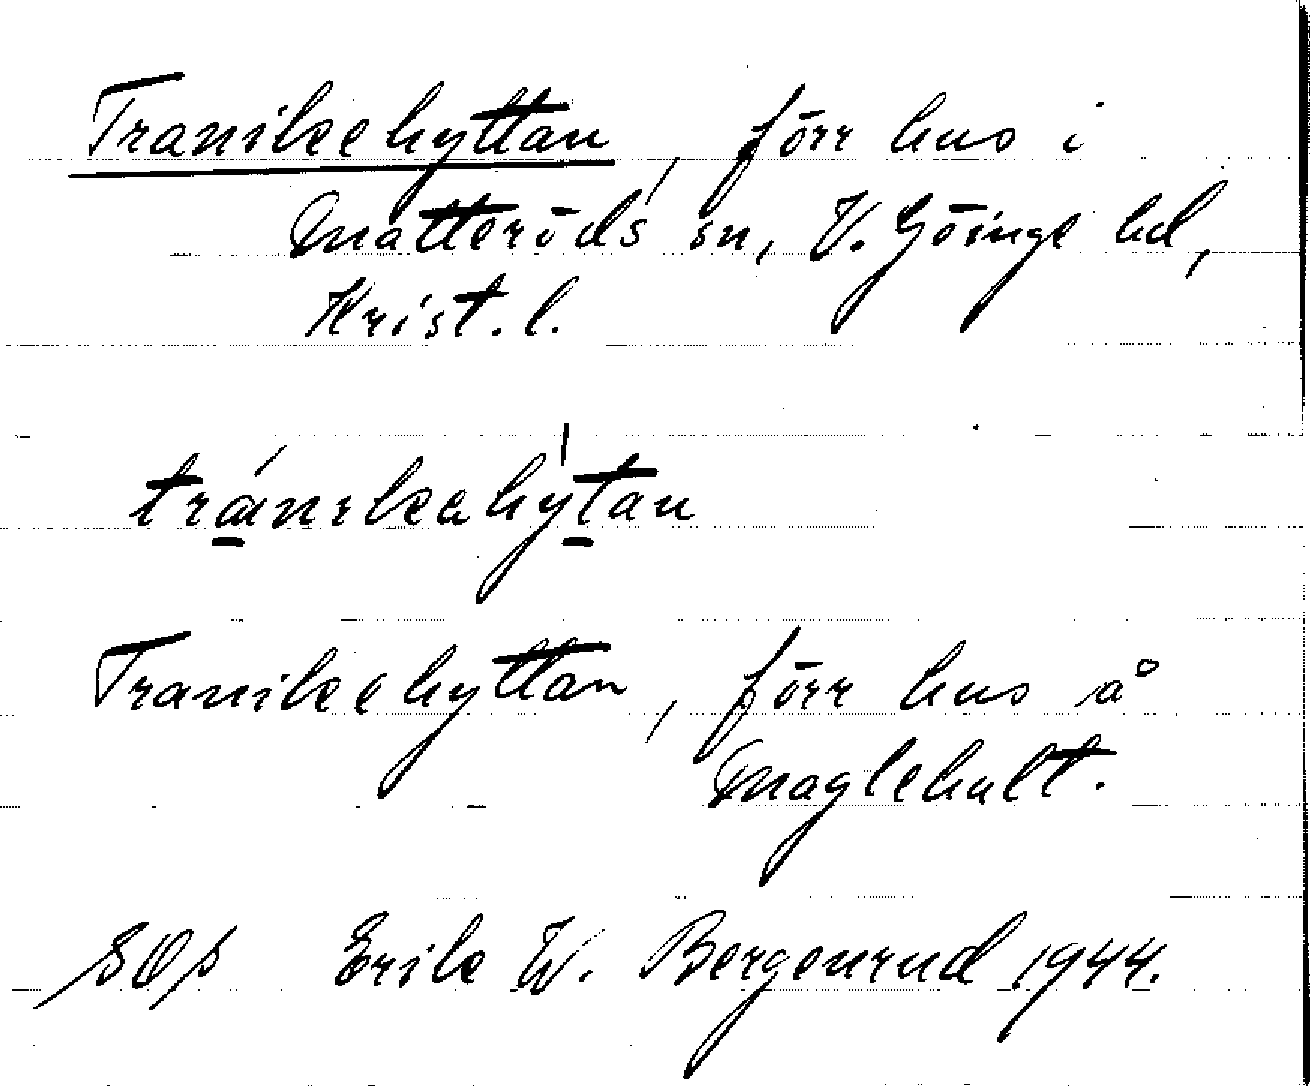 Tranikehyttan, förr hus i
Matteröds sn, V. Göinge hd,
Krist. l.
tránıkahy̍tan
Tranikehyttan, förr hus å
Maglehult.
SOS Erik W. Bergenrud 1944.